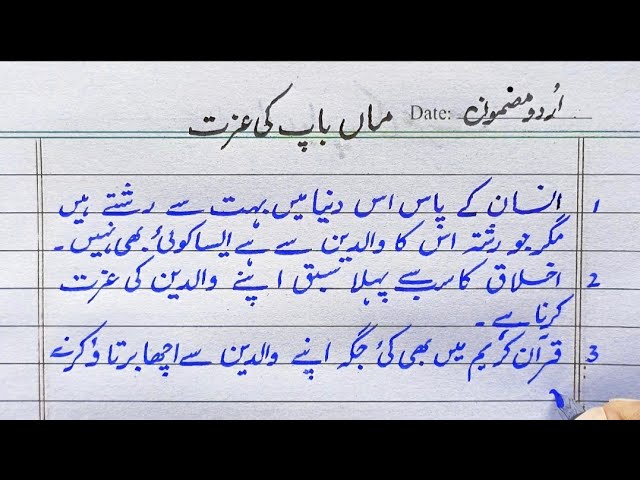 اُردو مضمون
Date:
ماں باپ کی عزت
1 انسان کے پاس اس دنیا میں بہت سے رشتے ہیں
مگر جو رشتہ اس کا والدین سے ہے ایسا کوئی بھی نہیں۔
2 اخلاق کا سب سے پہلا سبق اپنے والدین کی عزت
کرنا ہے۔
3 قرآن کریم میں بھی کئی جگہ اپنے والدین سے اچھا برتاؤ کرنے